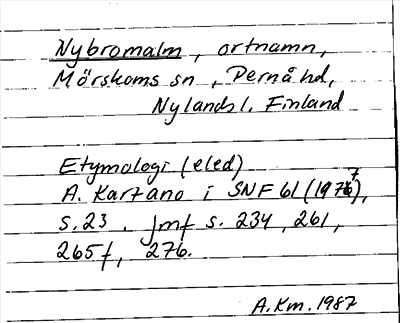 Nybromalm, ortnamn,
Mörskoms sn, Pernå hd,
Nylands l. Finland
Etymologi (eled)
A. Karzano i SNF 61 (1977),
s. 23. Jmf s. 234, 261,
265f, 276.
A.Km. 1987